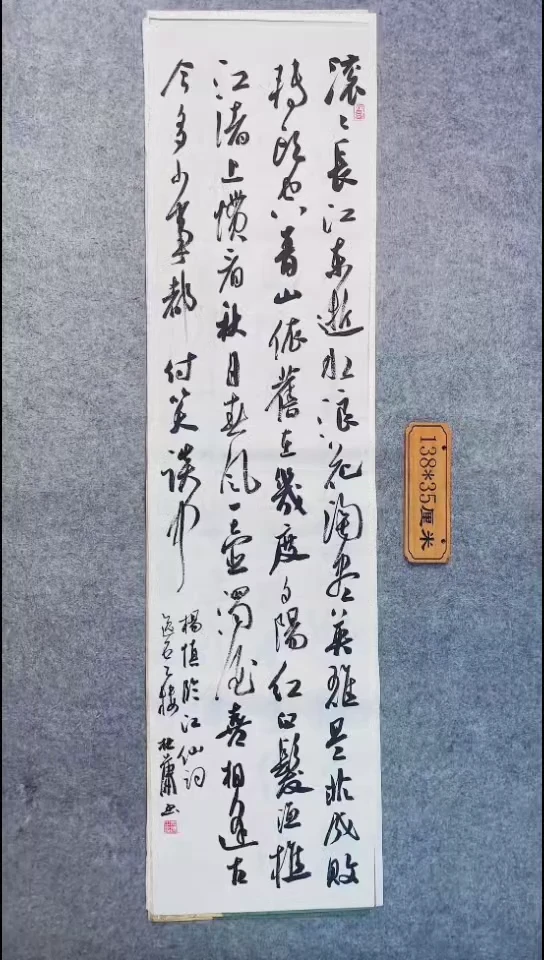 滚〻長江東逝水浪花淘盡英雄是非成敗
轉頭空青山依舊在幾度夕陽紅白髮漁樵
江渚上慣看秋月春風一壺濁酒喜相逢古
今多少事都付笑談中
楊慎临江仙词
杜蕭书
138*35厘米